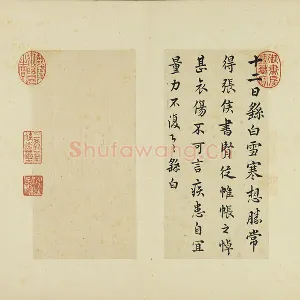 十二日繇白雪寒想勝常
得張侯書賢從帷帳之悼
甚哀傷不可言疾患自宜
量力不復々繇白
Shufawang.cn